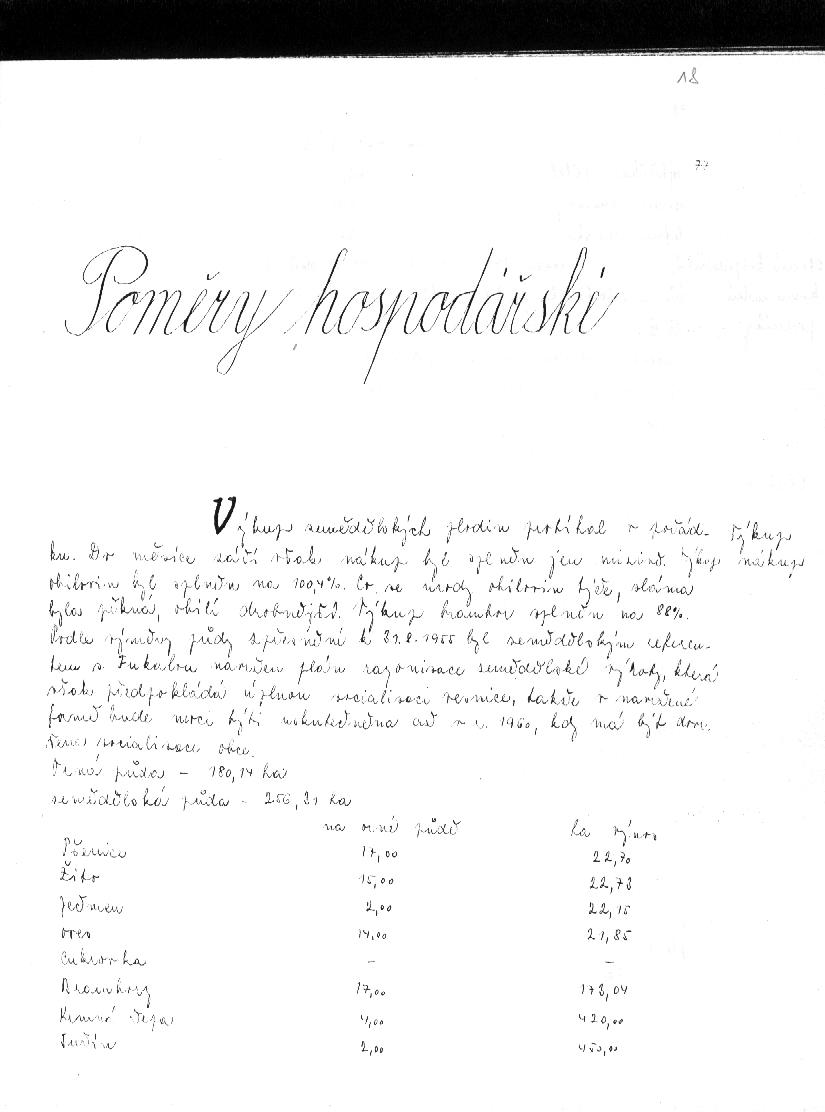 18
77
Poměry hospodářské
Výkup zemědělských plodin probíhal v pořád- Výkup
ku. Do měsíce září však nákup byl splněn jen mizivě. Výkup nákup
obilovin byl splněn na 100,4%. Co se úrody obilovin týče, sláma
byla pěkná, obilí drobnější. Výkup brambor splněn na 88%.
Podle výměry půdy zpřesnění k 31.8.1955 byl zemědělským referen-
tem s. Fukalou navržen plán rajonisace zemědělské výroby, která
však předpokládá úplnou socialisaci vesnice, takže v navržené
formě bude moci býti uskutečněna až v r. 1960, kdy má být dovr.
šena socialisace obce.
Orná půda – 180,14 ha
zemědělská půda - 256,21 ha
na orné půdě ha výnos
Pšenice 17,00 22,70
Žito 15,00 22,73
Ječmen 2,00 22,15
oves 14,00 21,85
Cukrovka – –
Brambory 17,00 173,04
Krmná řepa 4,00 420,00
Tuřín 2,00 450,00